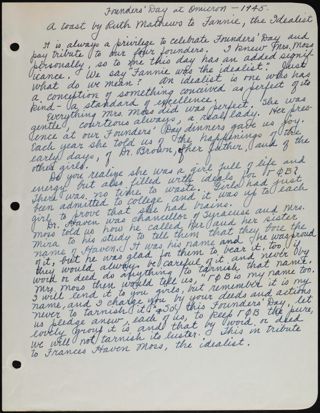 Founders' Day at Omicron - 1945.
A toast by Ruth Mathews to Fannie, the Idealist
It is always a privilege to celebrate Founders' Day and
pay tribute to our four founders. I knew Mrs. Moss
personally, so to me this day has an added signif-
icance. We say "Fannie was the idealist." Just
what do we mean? An idealist is one who has
a conception of something conceived as perfect of its
kind - a standard of excellence.
Everything Mrs. Moss did was perfect. She was
gentle, courteous always, a real lady. Her pres-
ence at our Founders' Day dinners gave us joy.
Each year she told us of the happenings of the
early days, of Dr. Brown, her father, and of the
other girls.
Do you realize she was a girl full of life and
energy but also filled with ideals for ΓΦΒ?
There was no time to waste. Girls had just
been admitted to college and it was up to each
girl to prove that she had brains.
Dr. Haven was chancellor of Syracuse and Mrs.
Moss told us how he called her and her sister
Mira to his study to tell them that they bore the
name of Haven. It was his name and he was proud
of it, but he was glad for them to bear it, too, if
they would always be careful of it and never by
word or deed do anything to tarnish that name.
Mrs. Moss then would tell us, "ΓΦΒ is my name too.
I will lend it to you girls, but remember it is my
name, and I charge you by your deeds and actions
never to tarnish it." So, this Founders' Day, let
us pledge anew, each of us, to keep ΓΦΒ the pure,
lovely group it is and that by word or deed
we will not tarnish its luster. This in tribute
to Frances Haven Moss, the idealist.